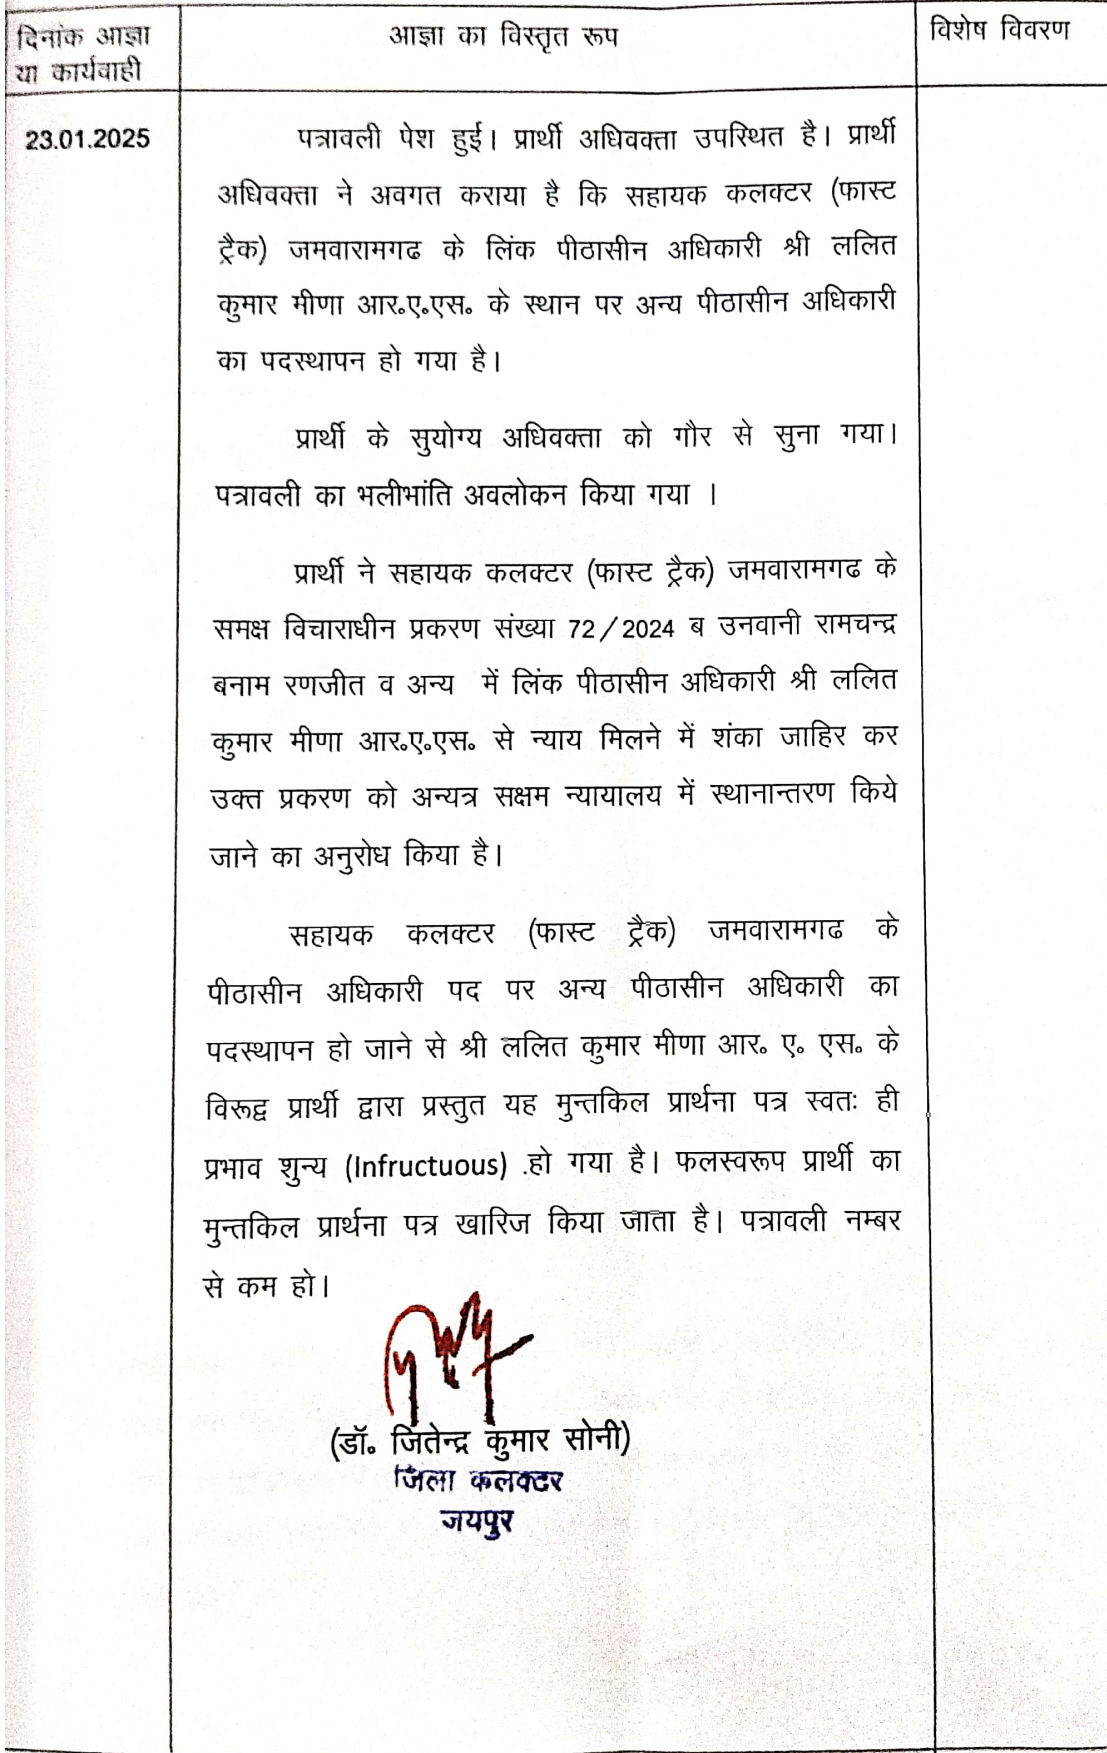 दिनांक आज्ञा
या कार्यवाही
आज्ञा का विस्तृत रूप
विशेष विवरण
23.01.2025
पत्रावली पेश हुई। प्रार्थी अधिवक्ता उपस्थित है। प्रार्थी
अधिवक्ता ने अवगत कराया है कि सहायक कलक्टर (फास्ट
ट्रैक) जमवारामगढ के लिंक पीठासीन अधिकारी श्री ललित
कुमार मीणा आर०ए०एस० के स्थान पर अन्य पीठासीन अधिकारी
का पदस्थापन हो गया है।
प्रार्थी के सुयोग्य अधिवक्ता को गौर से सुना गया।
पत्रावली का भलीभांति अवलोकन किया गया ।
प्रार्थी ने सहायक कलक्टर (फास्ट ट्रैक) जमवारामगढ के
समक्ष विचाराधीन प्रकरण संख्या 72/2024 ब उनवानी रामचन्द्र
बनाम रणजीत व अन्य में लिंक पीठासीन अधिकारी श्री ललित
कुमार मीणा आर०ए०एस० से न्याय मिलने में शंका जाहिर कर
उक्त प्रकरण को अन्यत्र सक्षम न्यायालय में स्थानान्तरण किये
जाने का अनुरोध किया है।
सहायक कलक्टर (फास्ट ट्रैक) जमवारामगढ के
पीठासीन अधिकारी पद पर अन्य पीठासीन अधिकारी का
पदस्थापन हो जाने से श्री ललित कुमार मीणा आर० ए० एस० के
विरूद्व प्रार्थी द्वारा प्रस्तुत यह मुन्तकिल प्रार्थना पत्र स्वतः ही
प्रभाव शुन्य (Infructuous) .हो गया है। फलस्वरूप प्रार्थी का
मुन्तकिल प्रार्थना पत्र खारिज किया जाता है। पत्रावली नम्बर
से कम हो।
(डॉ० जितेन्द्र कुमार सोनी)
जिला कलक्टर
जयपुर